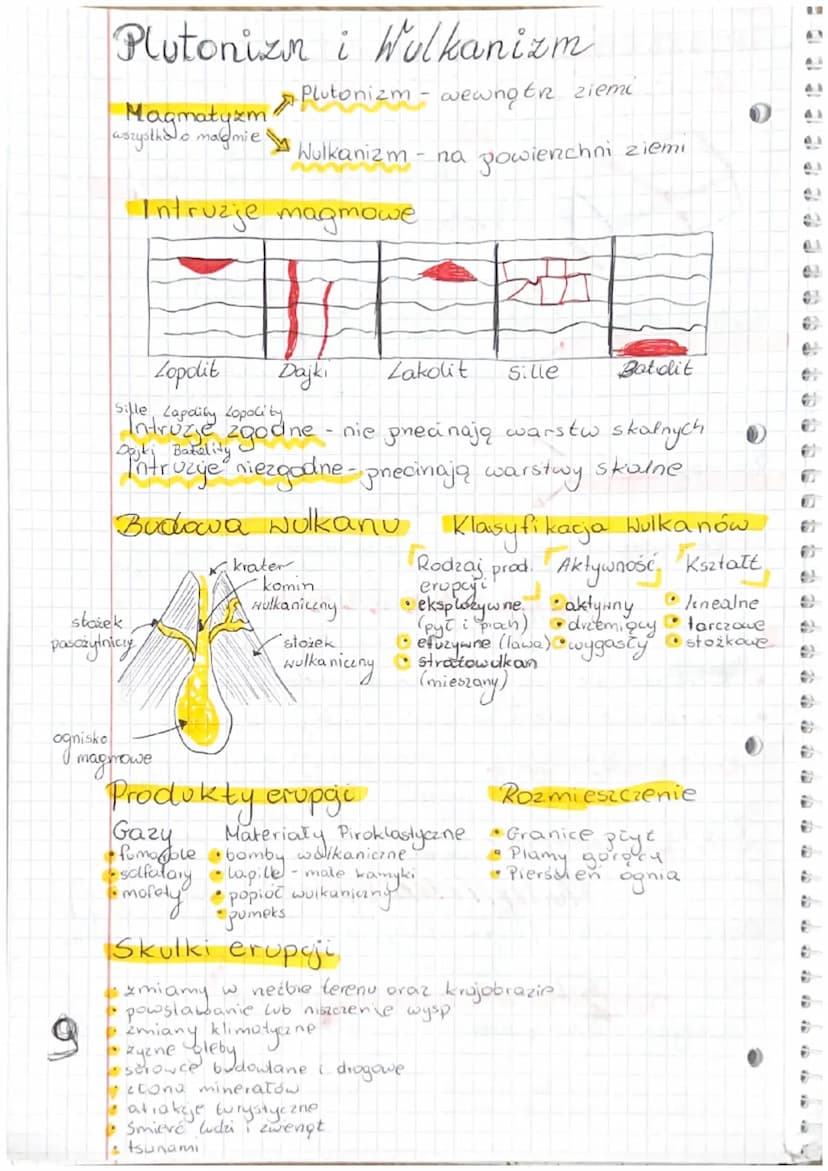 Plutonizm i Wulkanizm
Plutonizm - wewnątrz ziemi
Magmatyzm
wszystko o magmie
Wulkanizm - na powierzchni ziemi
Intruzje magmowe
Lopolit Dajki Lakolit Sille Batolit
Sille Lapality Lopolity
Intruzje zgodne - nie przecinają warstw skalnych
Dajki Batality
Intruzje niezgodne - przecinają warstwy skalne
Budowa wulkanu
krater
komin
wulkaniczny
stożek
pasożytniczy
stożek
wulkaniczny
ognisko
magmowe
Klasyfikacja wulkanów
Rodzaj prod.
erupcji
• eksplozywne
(pył i piach)
• efuzywne (lawa)
• stratowulkan
(mieszany)
Aktywność
• aktywny
• drzemiący
• wygasły
Kształt
• linealne
• tarczowe
• stożkowe
Produkty erupcji
Gazy
• fumarole
• solfatary
• mofety
Materiały Piroklastyczne
• bomby wulkaniczne
• lapille - małe kamyki
• popiół wulkaniczny
• pumeks
Rozmieszczenie
• Granice płyt
• Plamy gorąca
• Pierścień ognia
Skutki erupcji
• zmiany w rzeźbie terenu oraz krajobrazie
• powstawanie lub niszczenie wysp
• zmiany klimatyczne
• żyzne gleby
• surowce budowlane i drogowe
• złoża minerałów
• atrakcje turystyczne
• śmierć ludzi i zwierząt
• tsunami
9